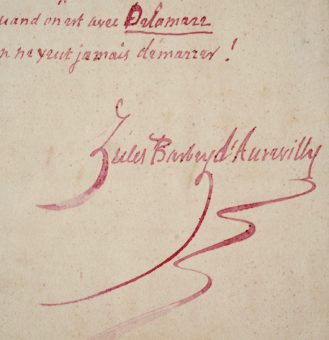 uand on est avec Delamarre
n ne veut jamais démarrer !
Jules Barbey d'Aurevilly